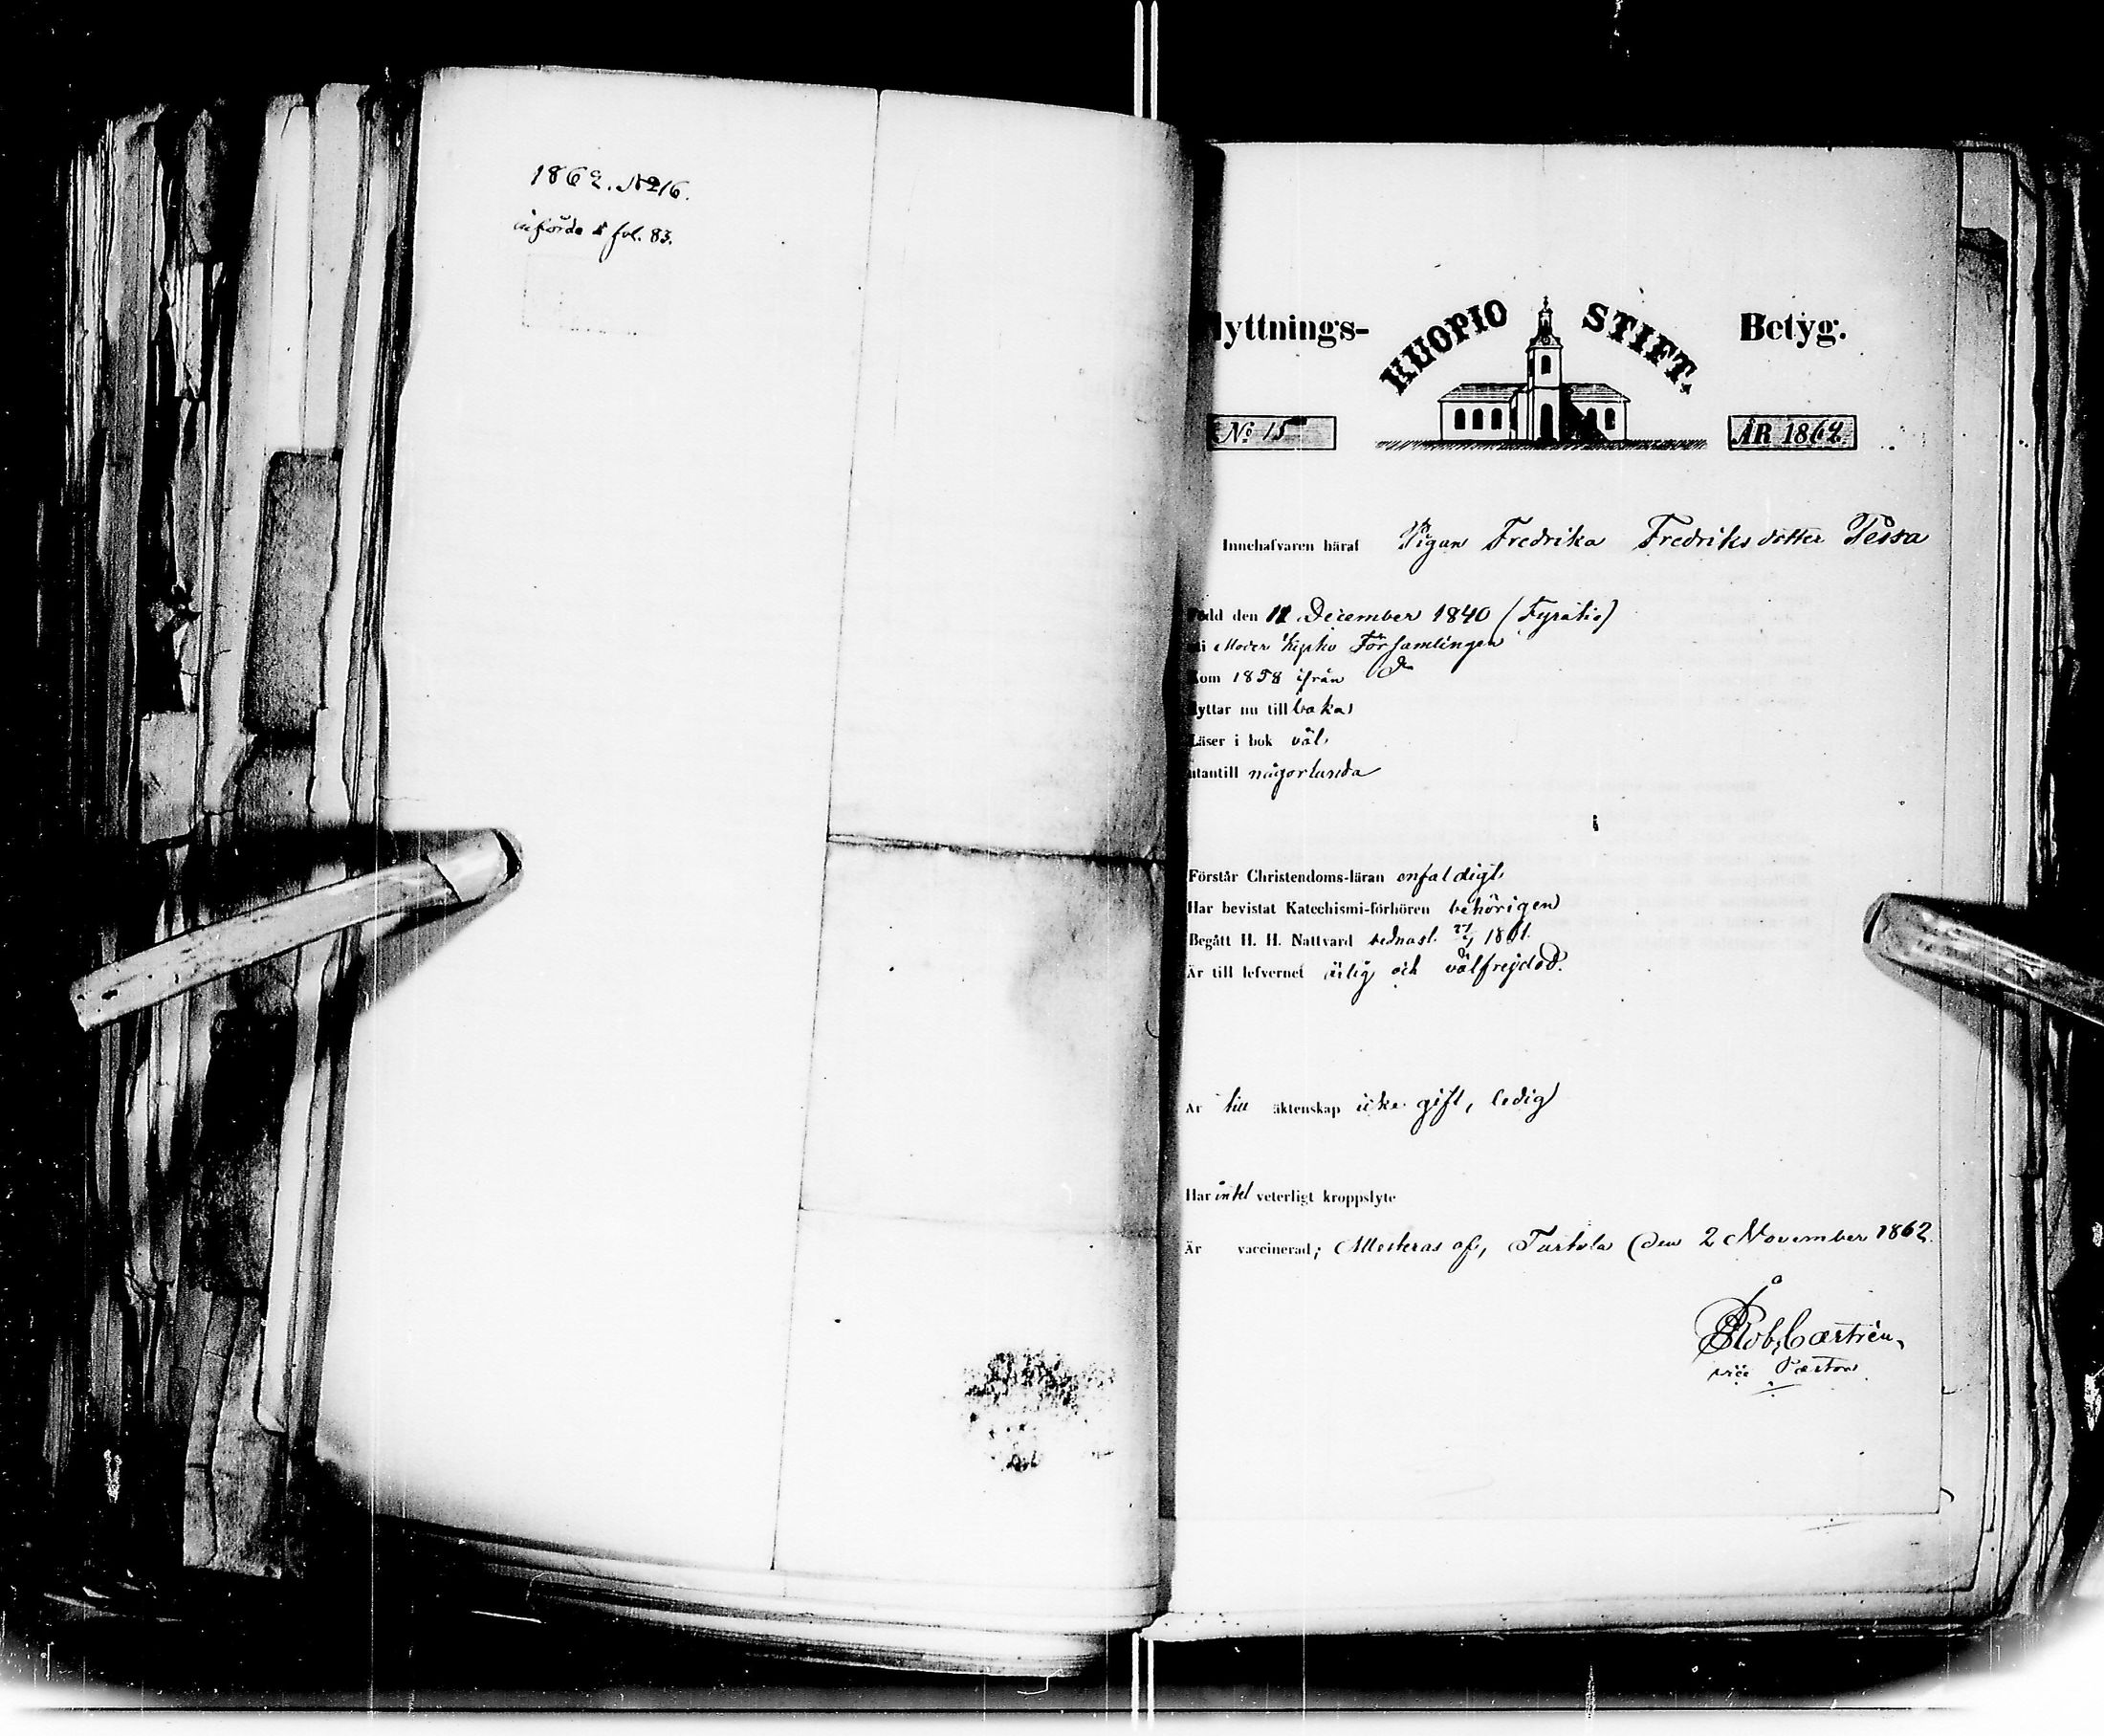 1862. No 16.
införda fol. 83.
lyttnings-
KUOPIO STIFT.
Betyg.
No 15
ÅR 1862.
Innehafvaren häraf Pigan Fredrika Fredriksdotter Pessa
Född den 11 December 1840 (Fyratio)
i Moder Församlingen
Kom 1858 ifrån Do
lyttar nu till baka
Läser i bok väl
utantill någorlunda
Förstår Christendoms-läran enfaldigt
Har bevistat Katechismi-förhören behörigen
Begått H. H. Nattvard sednast 1861.
Är till lefvernet ärlig och välfrejdad.
Är till äktenskap icke gift, ledig
Har intet veterligt kroppslyte
Är vaccinerad; Attesteras af, Turtola den 2 November 1862.
Rob. Castrén,
vice Pastor.